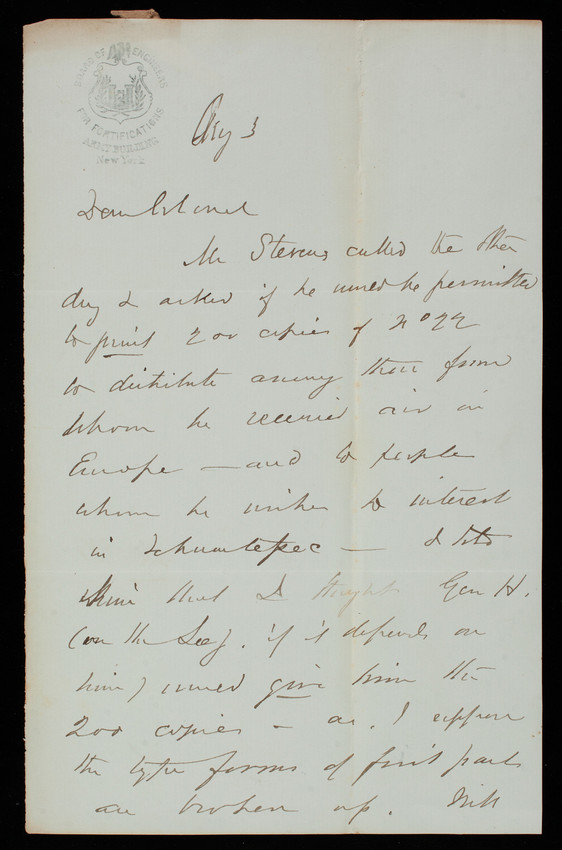 BOARD OF ENGINEERS
FOR FORTIFICATIONS
ARMY BUILDING
New York
Aug 3
Dear Colonel
Mr Stevens called the other
day & asked if he would be permitted
to print 200 copies of No 22
to distribute among those from
whom he received aid in
Europe — and to people
whom he wishes to interest
in Tehuantepec — I told
him that I thought Gen H.
(or the Sec'y. if it depends on
him) would give him the
200 copies — as, I suppose
the type forms of first parts
are broken up. Will